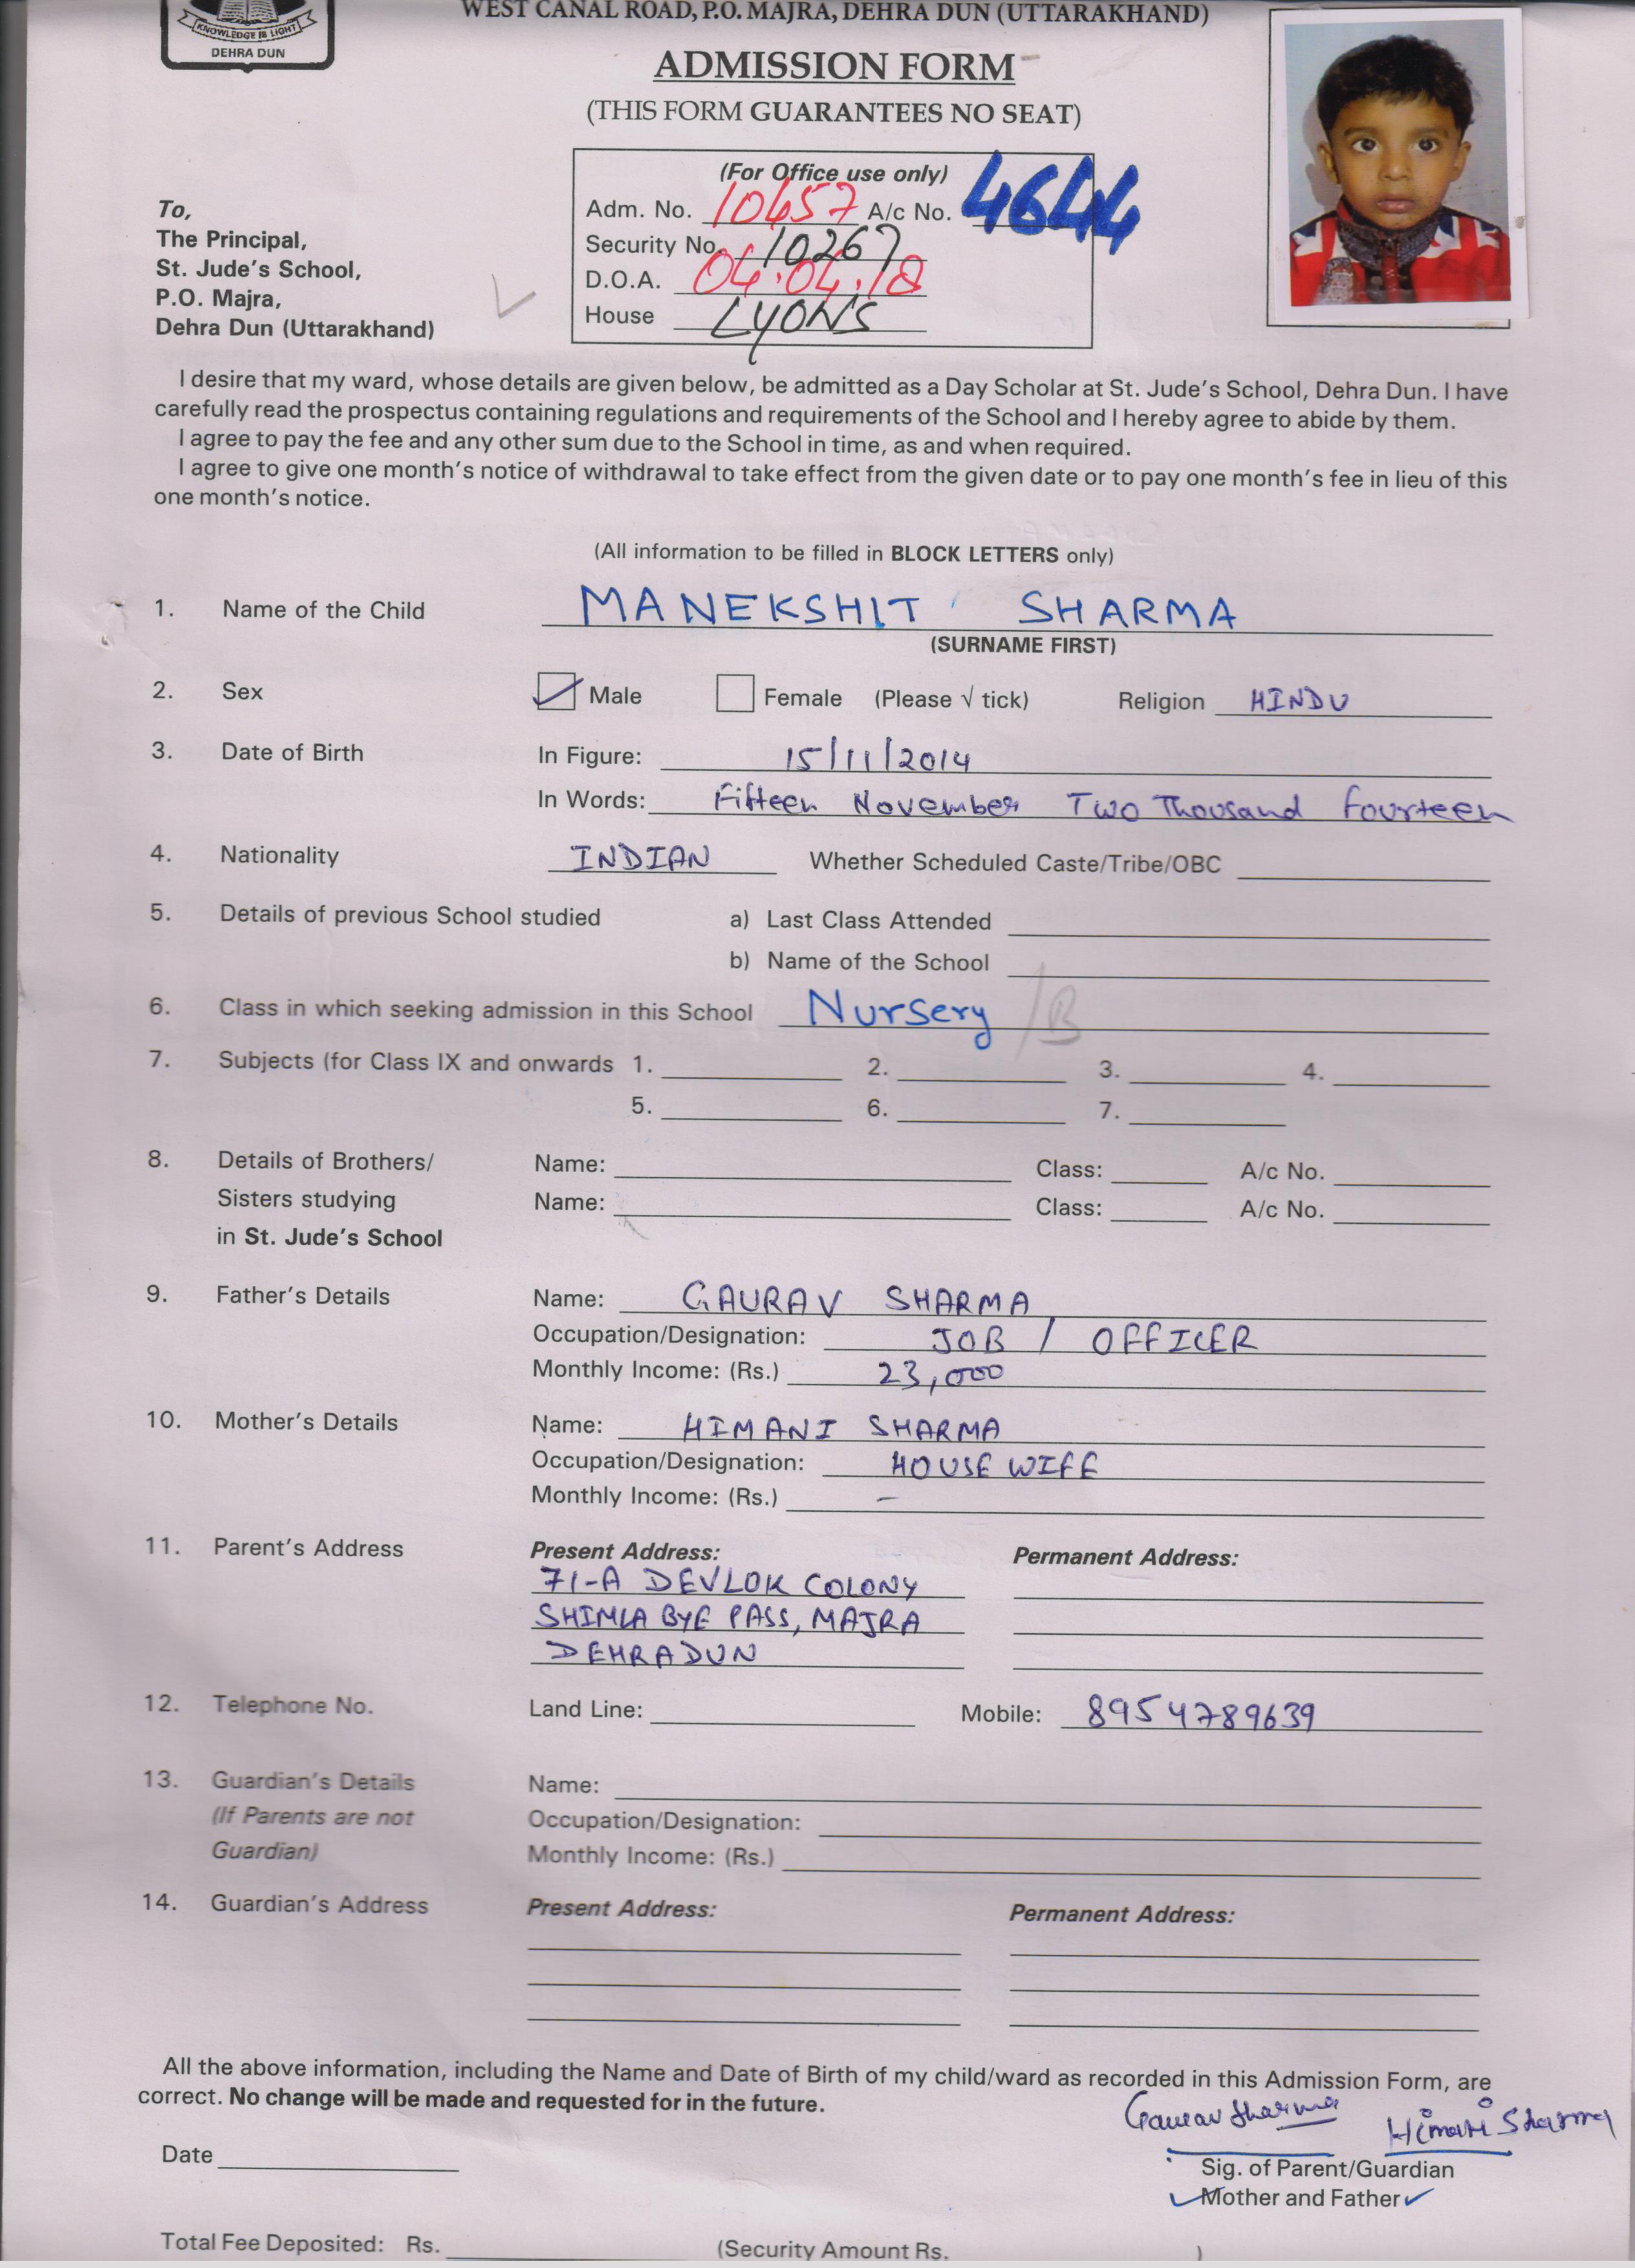 WEST CANAL ROAD, P.O. MAJRA, DEHRA DUN (UTTARAKHAND)
KNOWLEDGE IS LIGHT
DEHRA DUN
ADMISSION FORM
(THIS FORM GUARANTEES NO SEAT)
(For Office use only)
Adm. No. 10457 A/c No. 4644
Security No. 10267
D.O.A. 04.04.18
House LYONS
To,
The Principal,
St. Jude's School,
P.O. Majra,
Dehra Dun (Uttarakhand)
I desire that my ward, whose details are given below, be admitted as a Day Scholar at St. Jude's School, Dehra Dun. I have
carefully read the prospectus containing regulations and requirements of the School and I hereby agree to abide by them.
I agree to pay the fee and any other sum due to the School in time, as and when required.
I agree to give one month's notice of withdrawal to take effect from the given date or to pay one month's fee in lieu of this
one month's notice.
(All information to be filled in BLOCK LETTERS only)
1. Name of the Child MANEKSHIT SHARMA
(SURNAME FIRST)
2. Sex Male Female (Please √ tick) Religion HINDU
3. Date of Birth In Figure: 15/11/2014
In Words: Fifteen November Two Thousand Fourteen
4. Nationality INDIAN Whether Scheduled Caste/Tribe/OBC
5. Details of previous School studied a) Last Class Attended
b) Name of the School
6. Class in which seeking admission in this School Nursery /B
7. Subjects (for Class IX and onwards 1. 2. 3. 4.
5. 6. 7.
8. Details of Brothers/ Name: Class: A/c No.
Sisters studying Name: Class: A/c No.
in St. Jude's School
9. Father's Details Name: GAURAV SHARMA
Occupation/Designation: JOB / OFFICER
Monthly Income: (Rs.) 23,000
10. Mother's Details Name: HIMANI SHARMA
Occupation/Designation: HOUSE WIFE
Monthly Income: (Rs.) –
11. Parent's Address Present Address: Permanent Address:
71-A DEVLOK COLONY
SHIMLA BYE PASS, MAJRA
DEHRADUN
12. Telephone No. Land Line: Mobile: 8954789639
13. Guardian's Details Name:
(If Parents are not Occupation/Designation:
Guardian) Monthly Income: (Rs.)
14. Guardian's Address Present Address: Permanent Address:
All the above information, including the Name and Date of Birth of my child/ward as recorded in this Admission Form, are
correct. No change will be made and requested for in the future.
Gaurav Sharma Himani Sharma
Date
Sig. of Parent/Guardian
Mother and Father
Total Fee Deposited: Rs. (Security Amount Rs. )